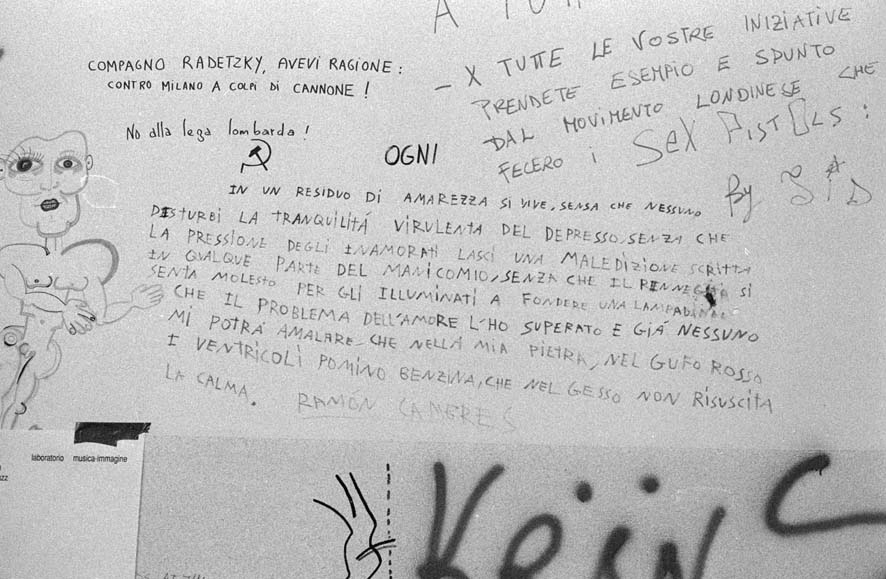 COMPAGNO RADETZKY, AVEVI RAGIONE:
CONTRO MILANO A COLPI DI CANNONE!
No alla lega lombarda!
OGNI
A
- X TUTTE LE VOSTRE INIZIATIVE
PRENDETE ESEMPIO E SPUNTO
DAL MOVIMENTO LONDINESE CHE
FECERO i SEX PISTOLS:
By SID
IN UN RESIDUO DI AMAREZZA SI VIVE, SENSA CHE NESSUNO
DISTURBI LA TRANQUILITÁ VIRULENTA DEL DEPRESSO, SENZA CHE
LA PRESSIONE DEGLI INAMORATI LASCI UNA MALEDIZIONE SCRITTA
IN QUALQUE PARTE DEL MANICOMIO, SENZA CHE IL SI
SENTA MOLESTO PER GLI ILLUMINATI A FONDERE UNA
CHE IL PROBLEMA DELL'AMORE L'HO SUPERATO E GIÁ NESSUNO
MI POTRÁ AMALARE, CHE NELLA MIA PIETRA, NEL GUFO ROSSO
I VENTRICOLI POMINO BENZINA, CHE NEL GESSO NON RISUSCITA
LA CALMA.
RAMÓN
laboratorio musica-immagine
zz